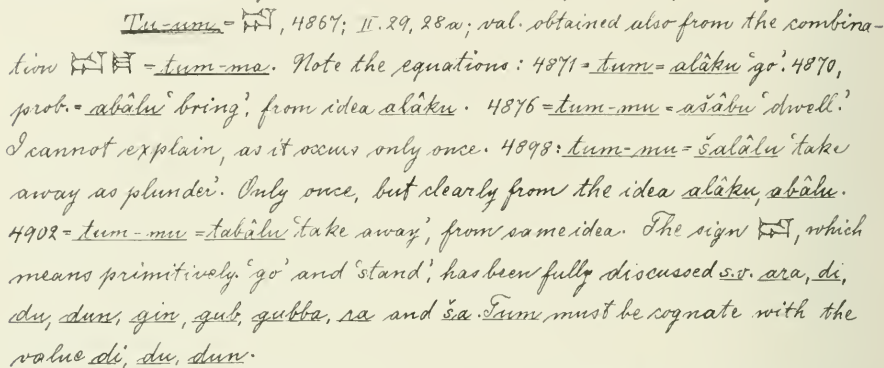 Tu-um = 𒁺, 4867; II. 29, 28a; val. obtained also from the combina-
tion 𒁺 𒈠 = tum-ma. Note the equations: 4871 = tum = alâku 'go'. 4870,
prob. = abâlu 'bring', from idea alâku. 4876 = tum-mu = ašâbu 'dwell.'
I cannot explain, as it occurs only once. 4898: tum-mu = šalâlu 'take
away as plunder'. Only once, but clearly from the idea alâku, abâlu.
4902 = tum-mu = tabâlu 'take away', from same idea. The sign 𒁺, which
means primitively 'go' and 'stand', has been fully discussed s.v. ara, di,
du, dun, gin, gub, gubba, ra and ša. Tum must be cognate with the
value di, du, dun.